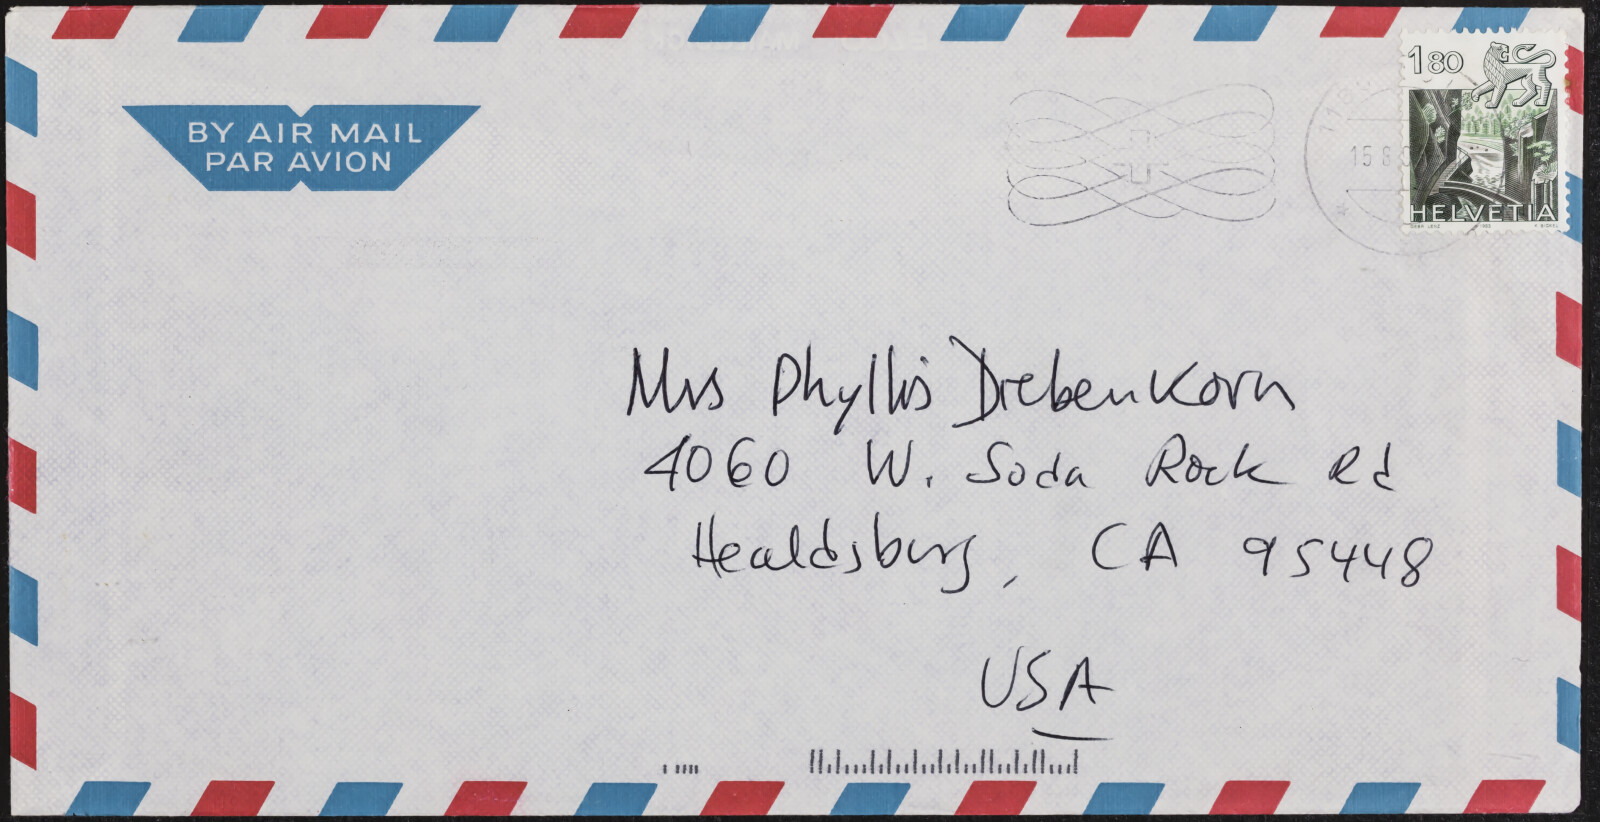 BY AIR MAIL
PAR AVION
1 80
15 8
HELVETIA
Mrs Phyllis Diebenkorn
4060 W. Soda Rock Rd
Healdsburg, CA 95448
USA